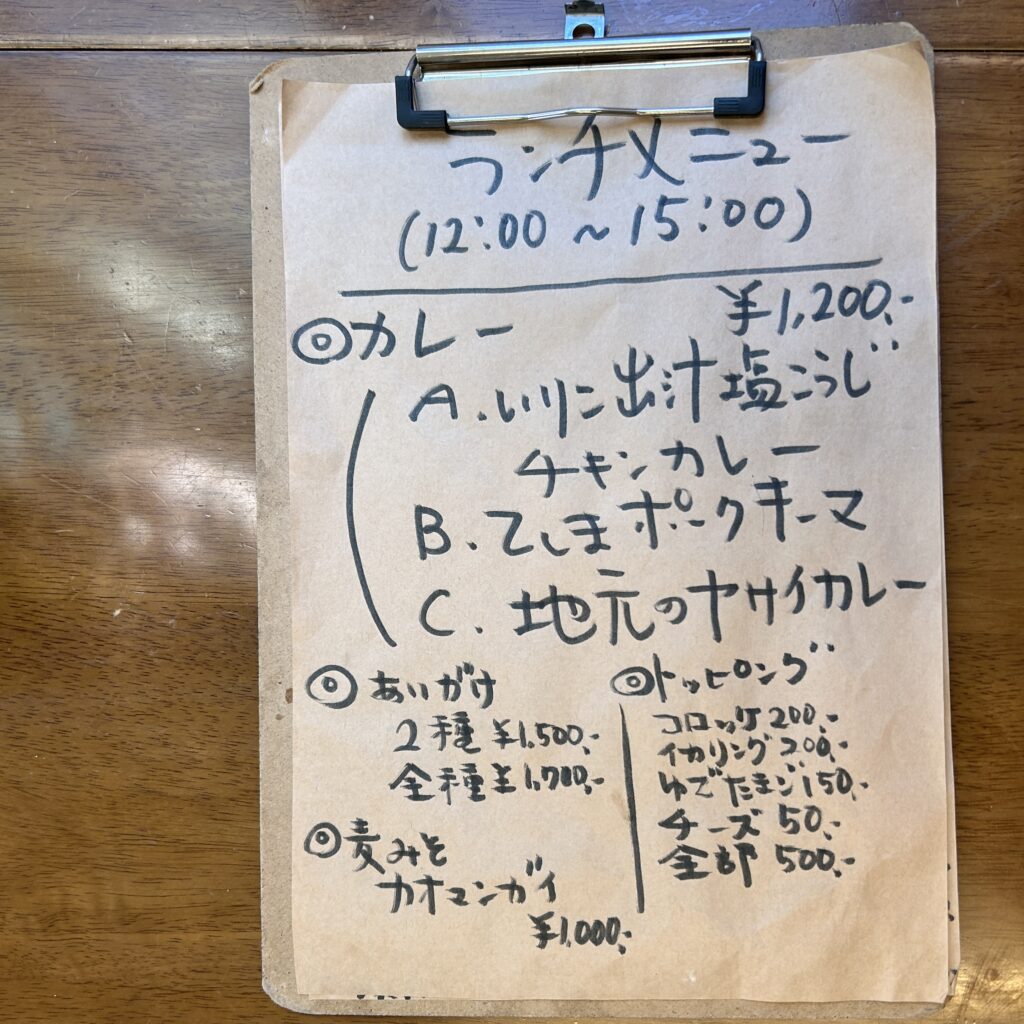 ランチメニュー
(12:00 ~ 15:00)
◎カレー ¥1,200.-
A. いりこ出汁塩こうじ
チキンカレー
B. てしまポークキーマ
C. 地元のヤサイカレー
◎あいがけ
2種 ¥1,500.-
全種 ¥1,700.-
◎麦みそ
カオマンガイ
¥1,000.-
◎トッピング
コロッケ 200.-
イカリング 200.-
ゆでたまご 150.-
チーズ 50.-
全部 500.-